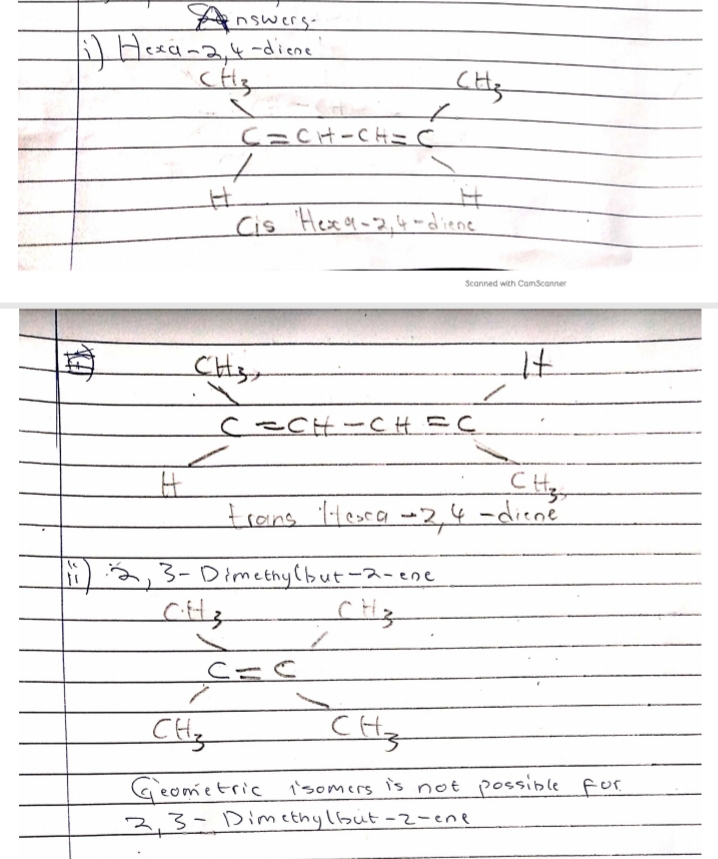 Answers-
i) Hexa-2,4-diene
CH3 CH3
C=CH-CH=C
H H
Cis Hexa-2,4-diene
Scanned with CamScanner
CH3 H
C=CH-CH=C
H CH3
trans Hexa-2,4-diene
ii) 2,3-Dimethylbut-2-ene
CH3 CH3
C=C
CH3 CH3
Geometric isomers is not possible for
2,3-Dimethylbut-2-ene